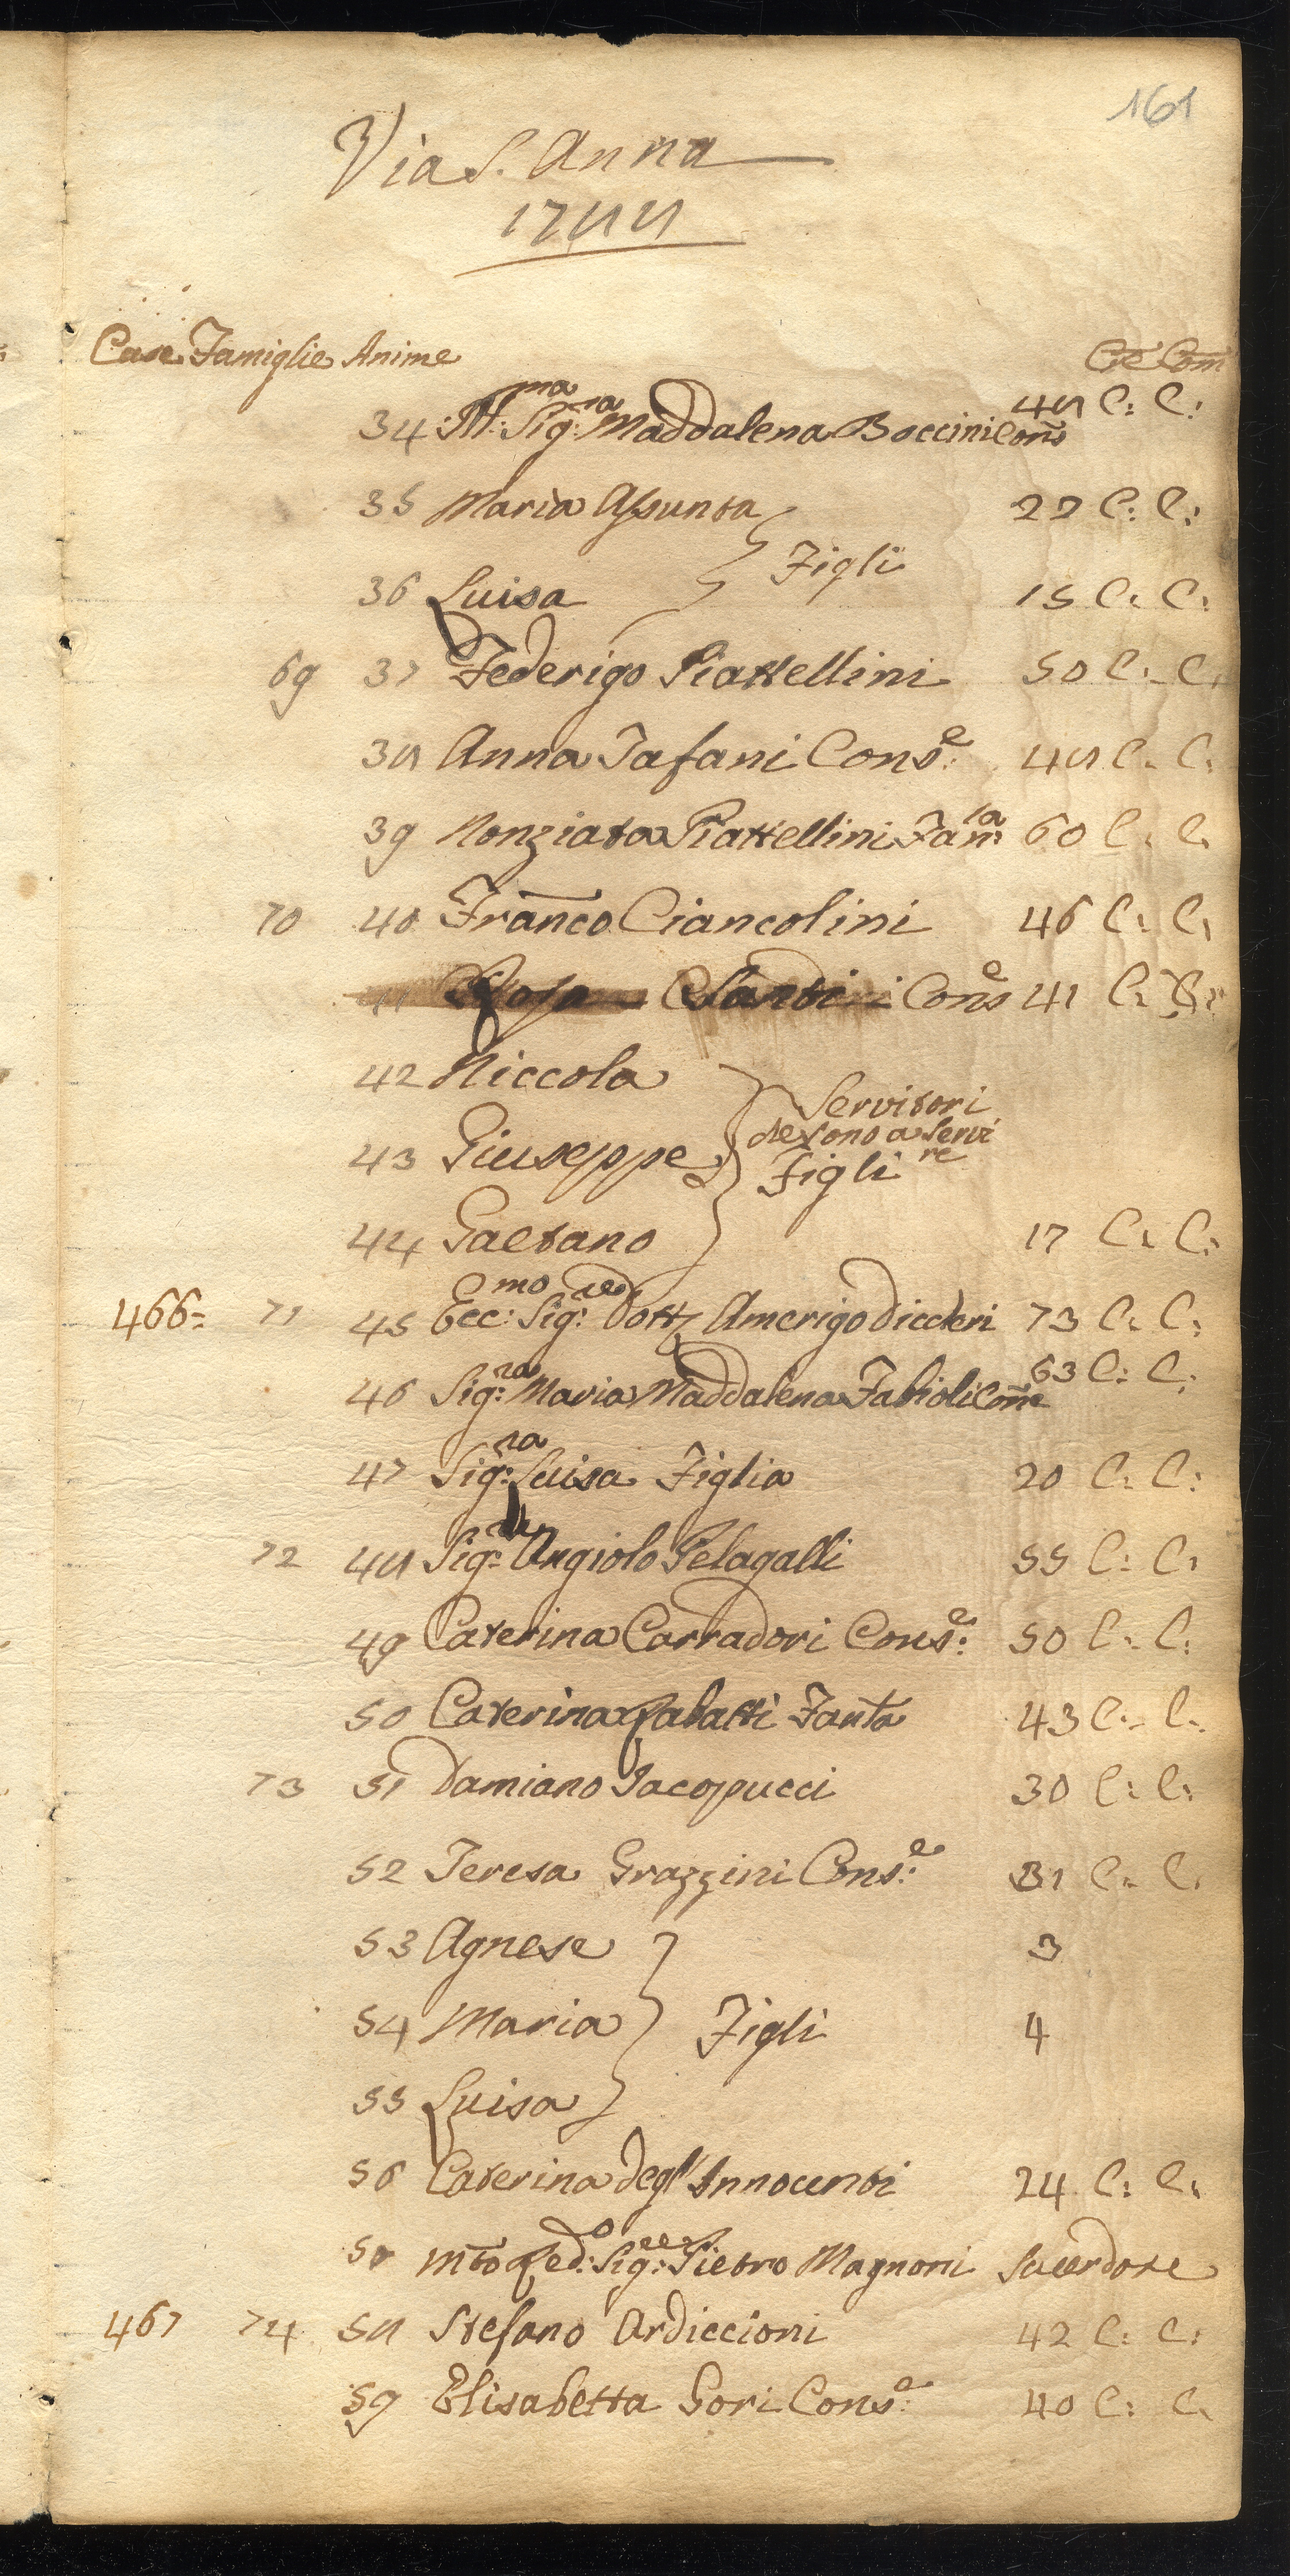 161
Via S. Anna
1788
Case Famiglie Anime Cre Com
34 Ill:ma Sig:ra Maddalena Boccini Cons 48 C: C:
35 Maria Assunta 22 C: C:
Figli
36 Luisa 15 C: C:
69 37 Federigo Piattellini 50 C: C:
38 Anna Tafani Cons:e 48 C: C:
39 Nonziata Piattellini Fan:la 60 C: C:
70 40 Franco Ciancolini 46 C: C:
Rosa Santi Cons e 41 C: C:
42 Niccola
Servitori
che sono a servi
re
43 Giuseppe Figli
44 Gaetano 17 C: C:
466= 71 45 Ecc:mo Sig:re Dott Amerigo Dicderi 73 C: C:
46 Sig:ra Maria Maddalena Fabioli Cone 63 C: C:
47 Sig:ra Luisa Figlia 20 C: C:
72 48 Sig:re Angiolo Pelagalli 55 C: C:
49 Caterina Corradori Cons:e 50 C: C:
50 Caterina Rabatti Fanta 43 C: C:
73 51 Damiano Iacopucci 30 C: C:
52 Teresa Grazzini Cons:e 31 C: C:
53 Agnese 3
54 Maria Figli 4
55 Luisa
56 Caterina degl'Innocenti 24 C: C:
57 Mto Red:o Sig:re Pietro Magnoni Sacerdote
467 74 58 Stefano Ardiccioni 42 C: C:
59 Elisabetta Gori Cons:e 40 C: C: